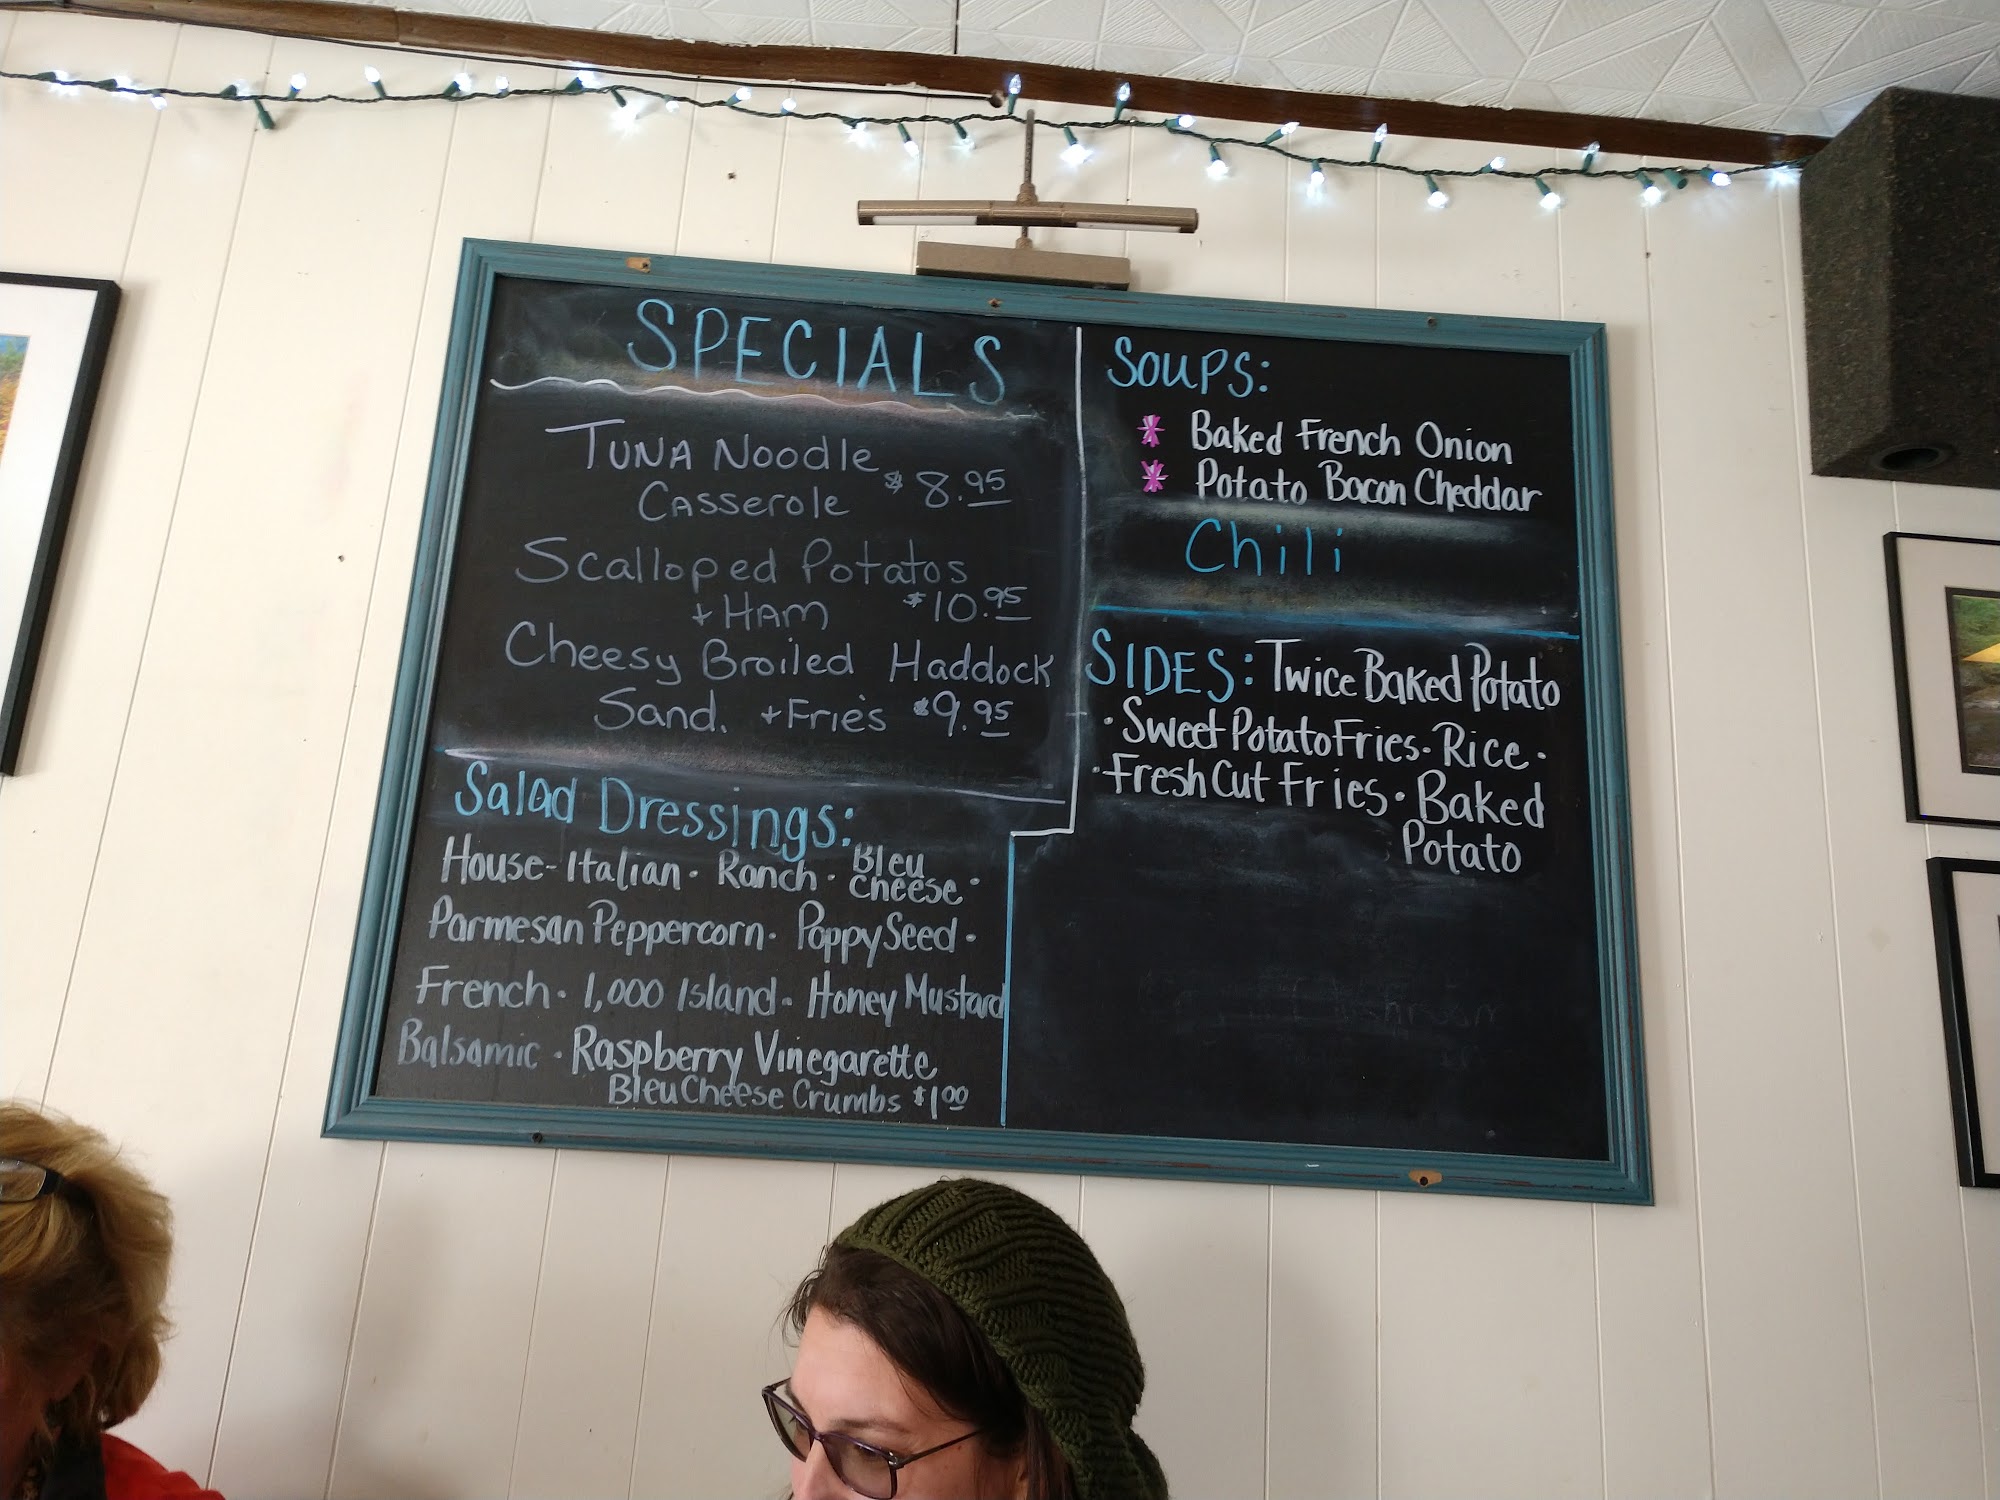 SPECIALS
TUNA NOODLE
CASSEROLE $8.95
SCALLOPED POTATOS
+ HAM $10.95
Cheesy Broiled Haddock
Sand. + Fries $9.95
Salad Dressings:
House-Italian · Ranch · Bleu Cheese ·
Parmesan Peppercorn · Poppy Seed ·
French · 1,000 Island · Honey Mustard
Balsamic · Raspberry Vinegarette
Bleu Cheese Crumbs $1.00
SOUPS:
Baked French Onion
Potato Bacon Cheddar
Chili
SIDES: Twice Baked Potato
· Sweet Potato Fries · Rice ·
· Fresh Cut Fries · Baked
Potato